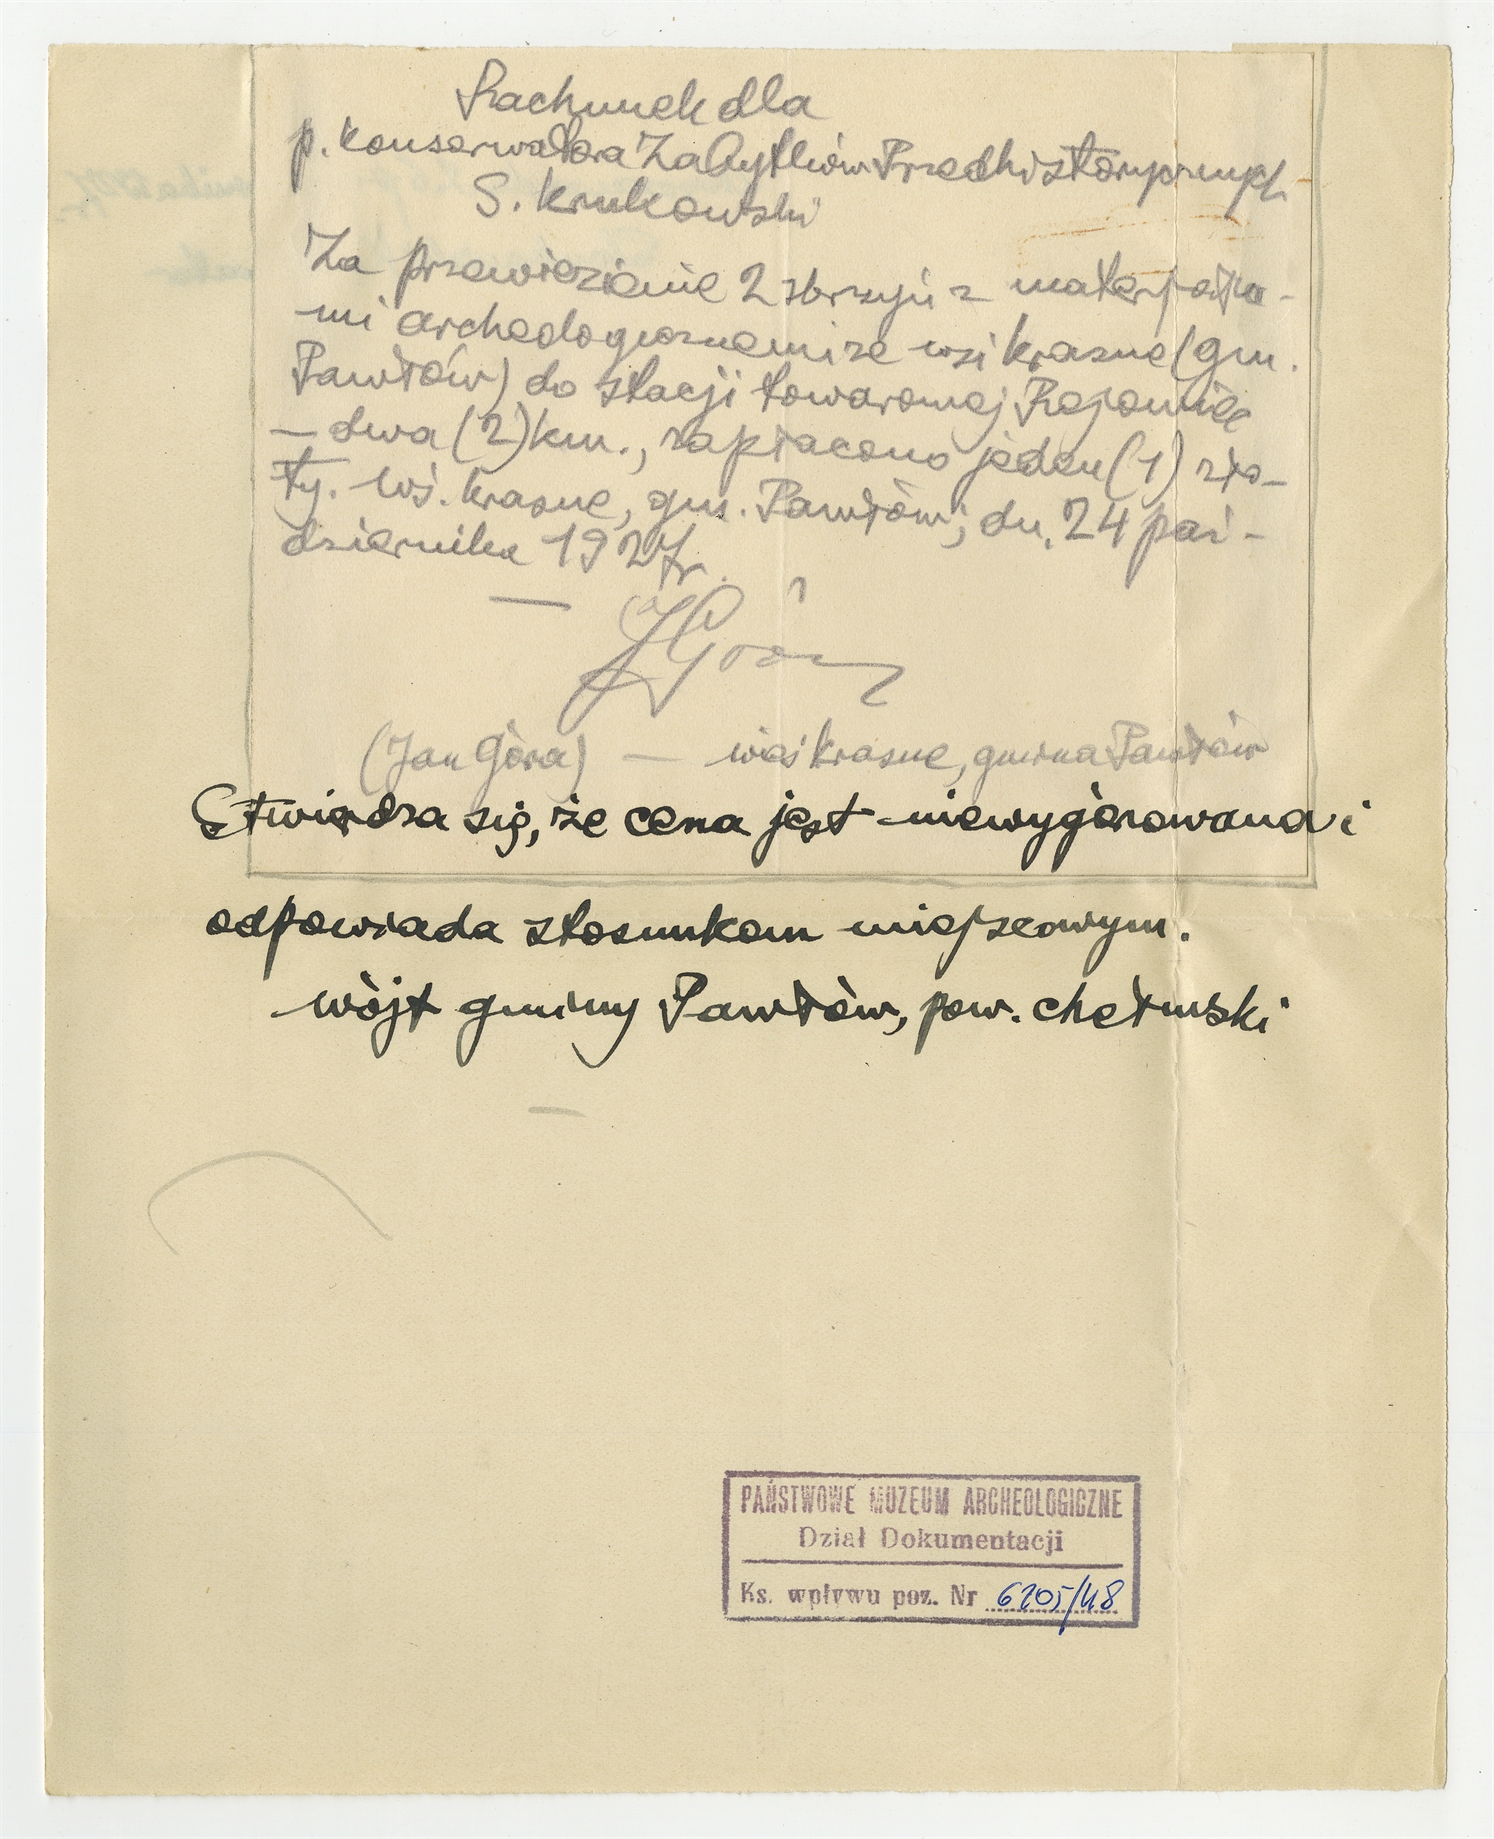 Rachunek dla
p. konserwatora Zabytków Przedhistorycznych
S. Krukowski
Za przewiezienie 2 skrzyń z materjała-
mi archeologicznemi ze wsi Krasne (gm.
Pawłów) do stacji towarowej Rejowiec
— dwa (2) km., zapłacono jeden (1) zło-
ty. Wś. Krasne, gm. Pawłów, dn. 24 paź-
dziernika 1927 r.
— JGóra
(Jan Góra) — wieś Krasne, gmina Pawłów
Stwierdza się, że cena jest niewygórowana i
odpowiada stosunkom miejscowym.
wójt gminy Pawłów, pow. chełmski
PAŃSTWOWE MUZEUM ARCHEOLOGICZNE
Dział Dokumentacji
Ks. wpływu poz. Nr 6205/48